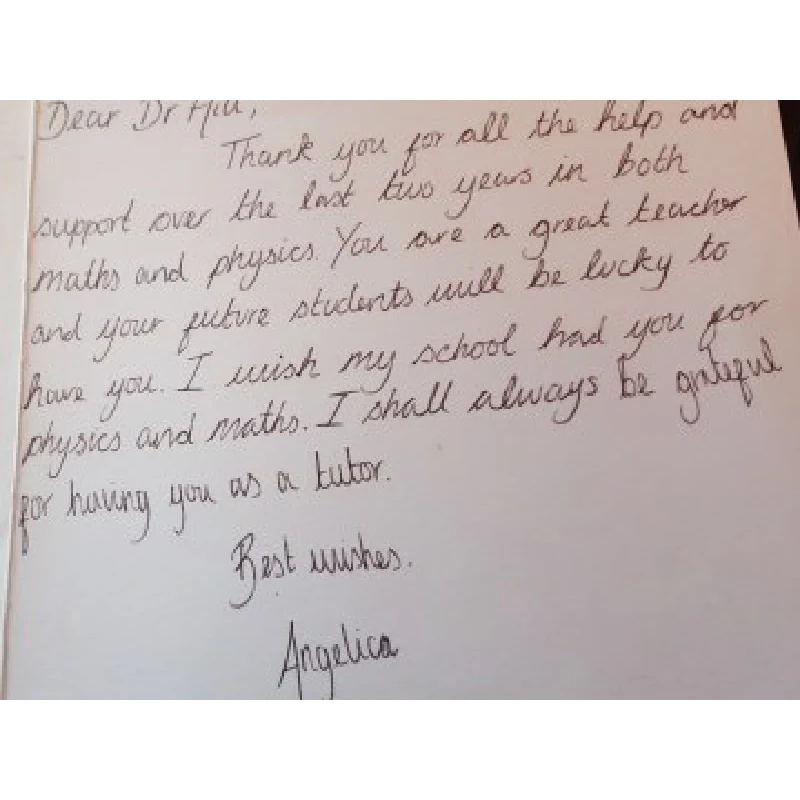 Dear Dr Hill,
Thank you for all the help and
support over the last two years in both
maths and physics. You are a great teacher
and your future students will be lucky to
have you. I wish my school had you for
physics and maths. I shall always be grateful
for having you as a tutor.
Best wishes.
Angelica